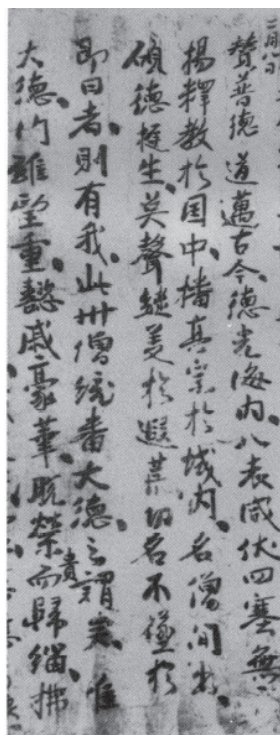 賛普德道邁古今德光海内八表咸伏四塞無
揚釋教於国中播真宗於域内名僧間出
碩德挺生英聲継美於遐葉功名不墜於
即日者則有我此州僧統番大德之謂矣惟
大德門雄望重懿戚豪華脱榮貴而歸緇拂